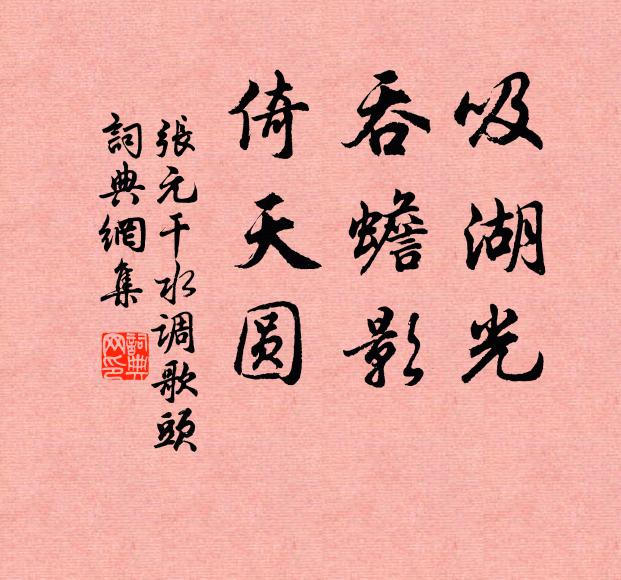 吸湖光
吞蟾影
倚天圆
張元干水调歌頭
詞典網集
詞典
网印